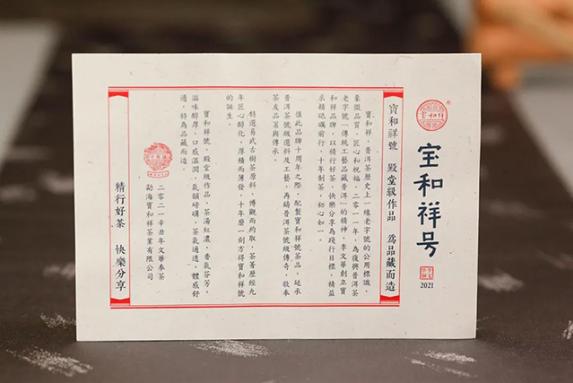 宝和祥号
2021
寶和祥號 殿堂級作品 為品藏而造
寶和祥，普洱茶歷史上一樁老字號的公用標識，
象徵品質、匠心和祝福。二零一一年，為復興普洱茶
老字號「傳統工藝品藏普洱」的精神，李文華創立寶
和祥品牌，以精行好茶、快樂分享為踐行目標，精益
求精砥礪前行，十年制茶，初心如一。
值此品牌十周年之際，配製寶和祥號茶品，延承
普洱茶號級選料及工藝，再鑄普洱茶號級傳奇，敬奉
茶友品茗與傳承。
特選易武古樹茶原料，博觀而約取，茶菁歷經九
年匠心醇化，厚積而薄發，十年磨一劍方得寶和祥號
的誕生。
寶和祥號，殿堂級作品，茶湯紅濃，香氣芬芳，
滋味醇厚，口感溫潤，氣韻磅礡，茶氣通透，體感舒
適，特為品藏而造。
二零二一辛丑年文華奉茶
勐海寶和祥茶業有限公司
精行好茶 快樂分享